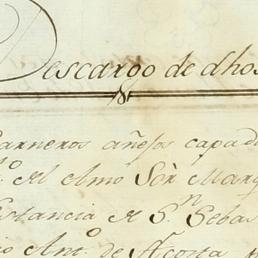 Descargo de dhos
Carneros añejos capad
R.l Ylmo Sòr Marq
Estancia R S.n Sebas
Ant.o de Acosta